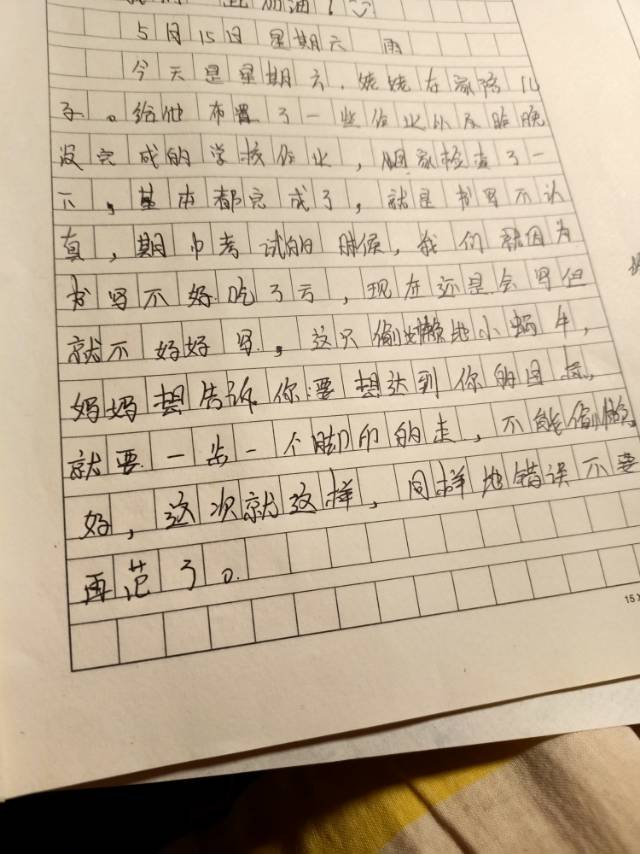 加油！
5月15日 星期六 雨
今天是星期六，姥姥在家陪儿
子。给他布置了一些作业以及昨晚
没完成的学校作业，回家检查了一
下，基本都完成了，就是书写不认
真，期中考试的时候，我们就因为
书写不好吃了亏，现在还是会写但
就不好好写，这只偷懒地小蜗牛，
妈妈想告诉你要想达到你的目标，
就要一步一个脚印的走，不能偷懒。
好，这次就这样，同样地错误不要
再范了。
15